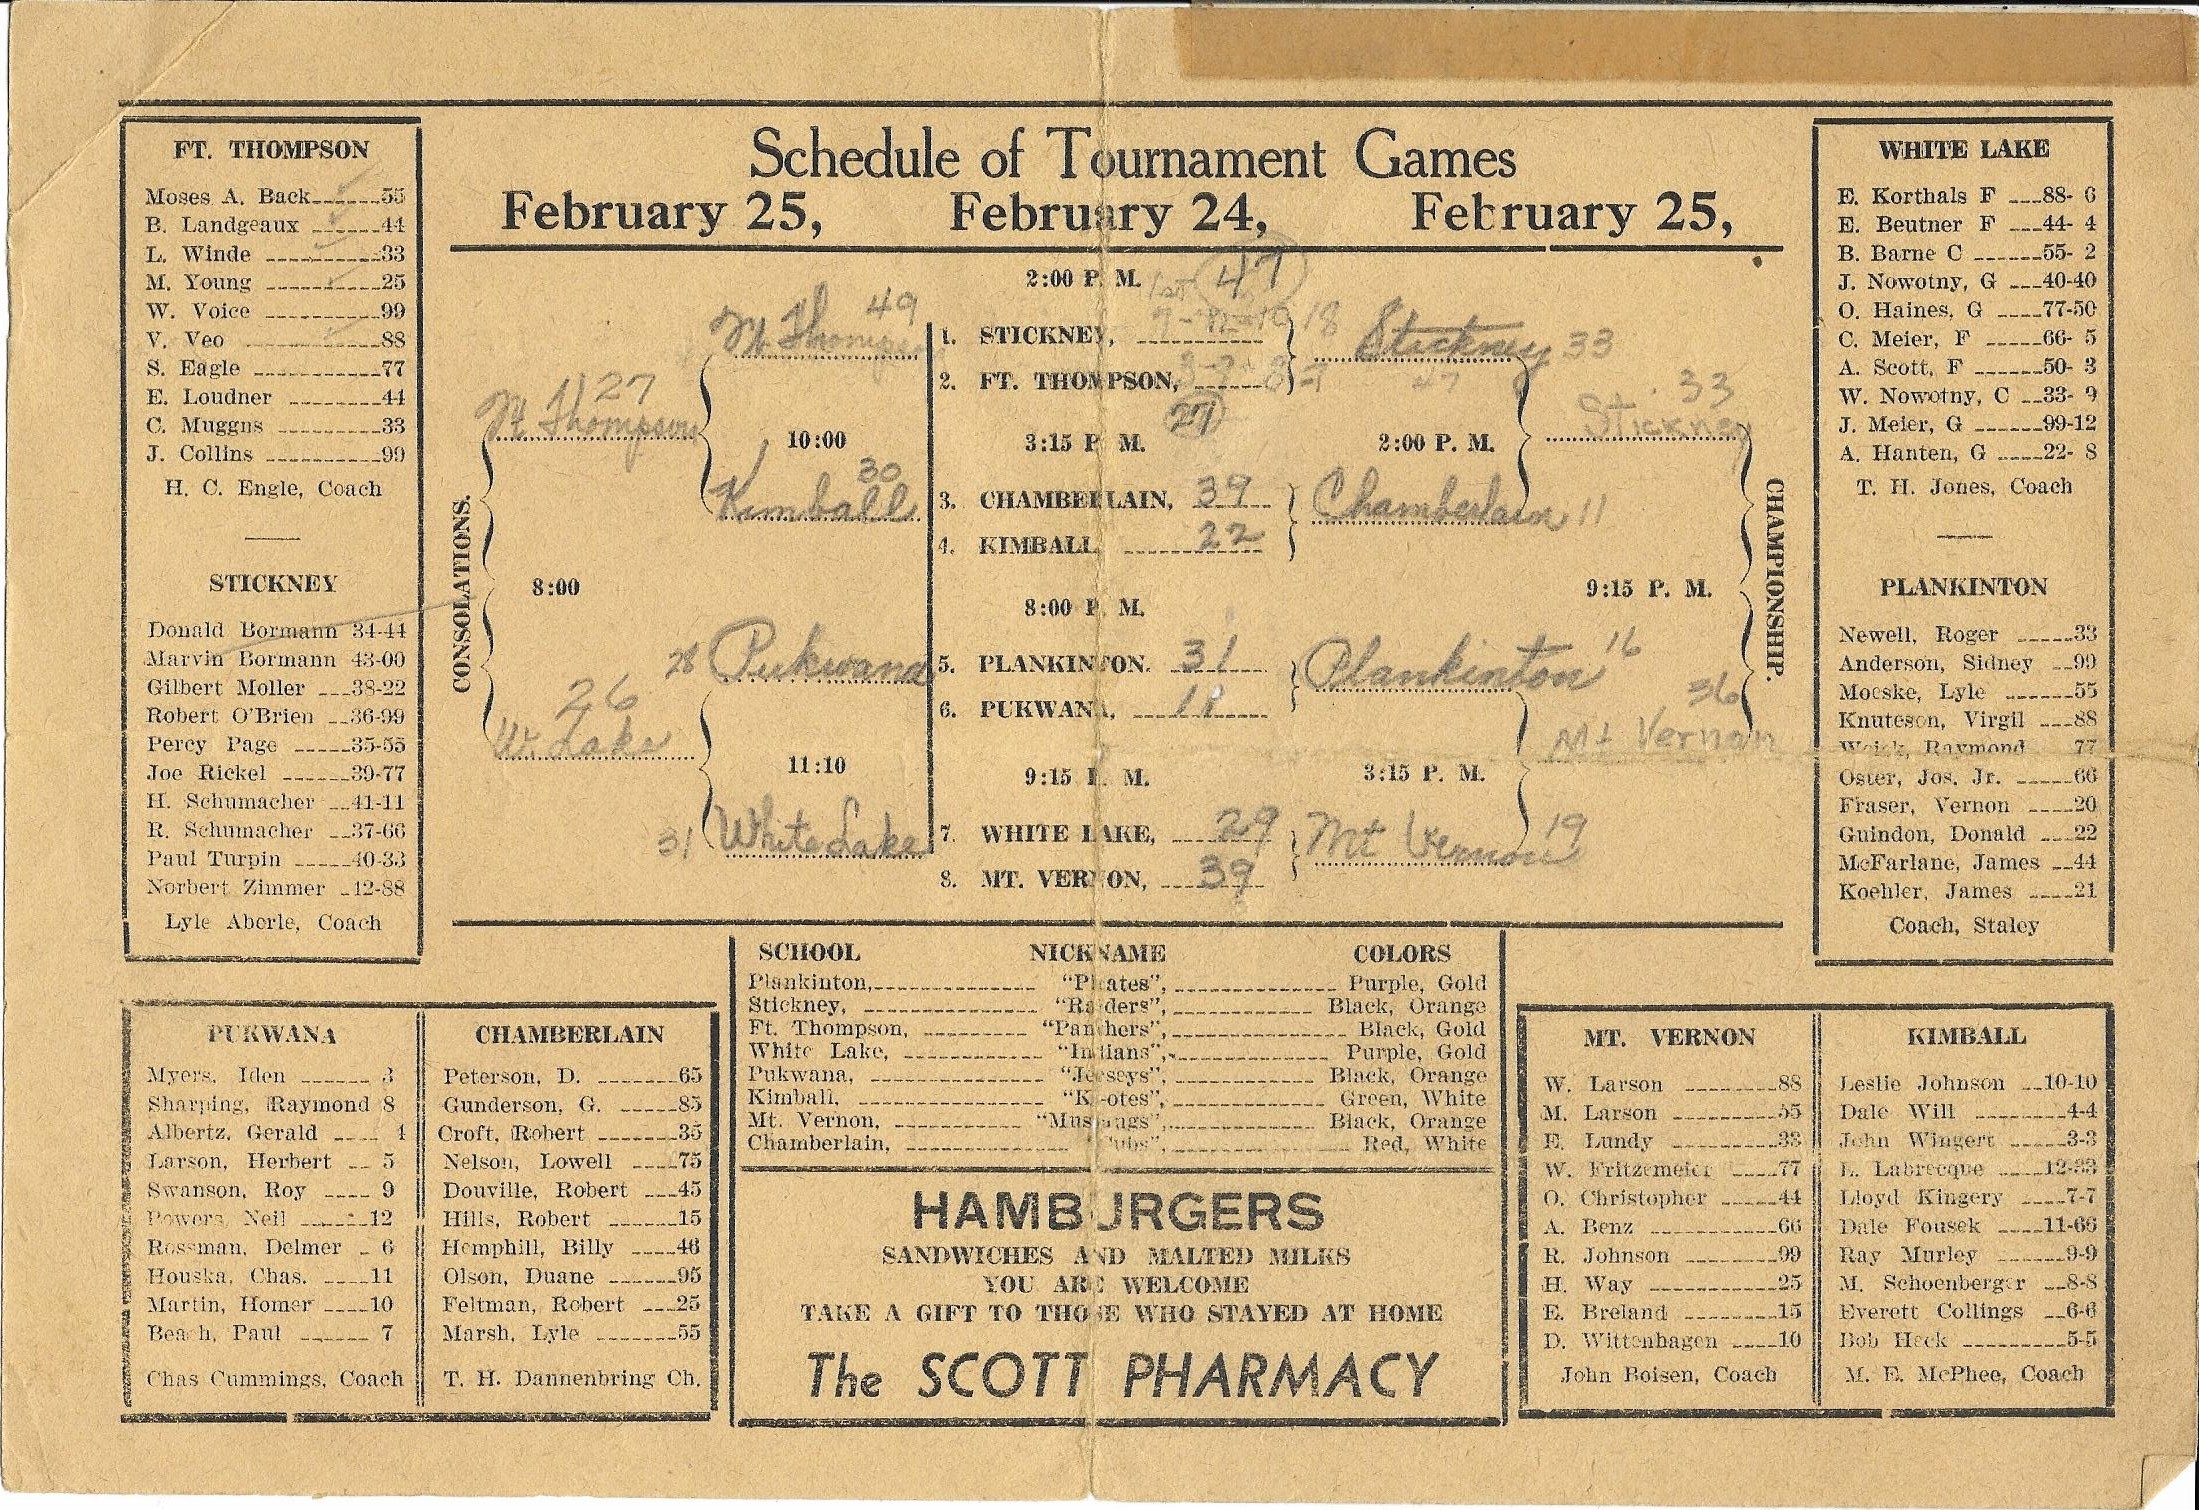 Schedule of Tournament Games
February 25, February 24, February 25,
FT. THOMPSON
Moses A. Back 55
B. Landgeaux 44
L. Winde 33
M. Young 25
W. Voice 99
V. Veo 88
S. Eagle 77
E. Loudner 44
C. Muggns 33
J. Collins 99
H. C. Engle, Coach
STICKNEY
Donald Bormann 34-44
Marvin Bormann 43-00
Gilbert Moller 38-22
Robert O'Brien 36-99
Percy Page 35-55
Joe Rickel 39-77
H. Schumacher 41-11
R. Schumacher 37-66
Paul Turpin 40-33
Norbert Zimmer 12-88
Lyle Aberle, Coach
CONSOLATIONS.
Ft Thompson 27
8:00
W. Lake 26
Ft Thompson 49
10:00
Kimball 30
28 Pukwana
11:10
31 White Lake
2:00 P. M.
1st 47
1. STICKNEY, 18
2. FT. THOMPSON,
27
3:15 P. M.
3. CHAMBERLAIN, 39
4. KIMBALL 22
8:00 P. M.
5. PLANKINTON. 31
6. PUKWANA,
9:15 P. M.
7. WHITE LAKE, 29
8. MT. VERNON, 39
Stickney 33
47
2:00 P. M.
Chamberlain 11
Plankinton 16
3:15 P. M.
Mt Vernon 19
33
Stickney
9:15 P. M.
36
Mt Vernon
CHAMPIONSHIP.
WHITE LAKE
E. Korthals F 88- 6
E. Beutner F 44- 4
B. Barne C 55- 2
J. Nowotny, G 40-40
O. Haines, G 77-50
C. Meier, F 66- 5
A. Scott, F 50- 3
W. Nowotny, C 33- 9
J. Meier, G 99-12
A. Hanten, G 22- 8
T. H. Jones, Coach
PLANKINTON
Newell, Roger 33
Anderson, Sidney 99
Moeske, Lyle 55
Knuteson, Virgil 88
Weick, Raymond 77
Oster, Jos. Jr. 66
Fraser, Vernon 20
Guindon, Donald 22
McFarlane, James 44
Koehler, James 21
Coach, Staley
PUKWANA
Myers, Iden 3
Sharping, Raymond 8
Albertz, Gerald 4
Larson, Herbert 5
Swanson, Roy 9
Powers, Neil 12
Rossman, Delmer 6
Houska, Chas. 11
Martin, Homer 10
Beach, Paul 7
Chas Cummings, Coach
CHAMBERLAIN
Peterson, D. 65
Gunderson, G. 85
Croft, Robert 35
Nelson, Lowell 75
Douville, Robert 45
Hills, Robert 15
Hemphill, Billy 46
Olson, Duane 95
Feltman, Robert 25
Marsh, Lyle 55
T. H. Dannenbring Ch.
SCHOOL NICKNAME COLORS
Plankinton, "Pirates", Purple, Gold
Stickney, "Raiders", Black, Orange
Ft. Thompson, "Panthers", Black, Gold
White Lake, "Indians", Purple, Gold
Pukwana, "Jerseys", Black, Orange
Kimball, "Kiotes", Green, White
Mt. Vernon, "Mustangs", Black, Orange
Chamberlain, "Cubs", Red, White
HAMBURGERS
SANDWICHES AND MALTED MILKS
YOU ARE WELCOME
TAKE A GIFT TO THOSE WHO STAYED AT HOME
The SCOTT PHARMACY
MT. VERNON
W. Larson 88
M. Larson 55
E. Lundy 33
W. Fritzemeier 77
O. Christopher 44
A. Benz 66
R. Johnson 99
H. Way 25
E. Breland 15
D. Wittenhagen 10
John Boisen, Coach
KIMBALL
Leslie Johnson 10-10
Dale Will 4-4
John Wingert 3-3
L. Labrecque 12-33
Lloyd Kingery 7-7
Dale Fousek 11-66
Ray Murley 9-9
M. Schoenberger 8-8
Everett Collings 6-6
Bob Heck 5-5
M. E. McPhee, Coach